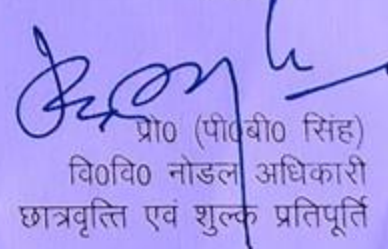 प्रो० (पी०बी० सिंह)
वि०वि० नोडल अधिकारी
छात्रवृत्ति एवं शुल्क प्रतिपूर्ति